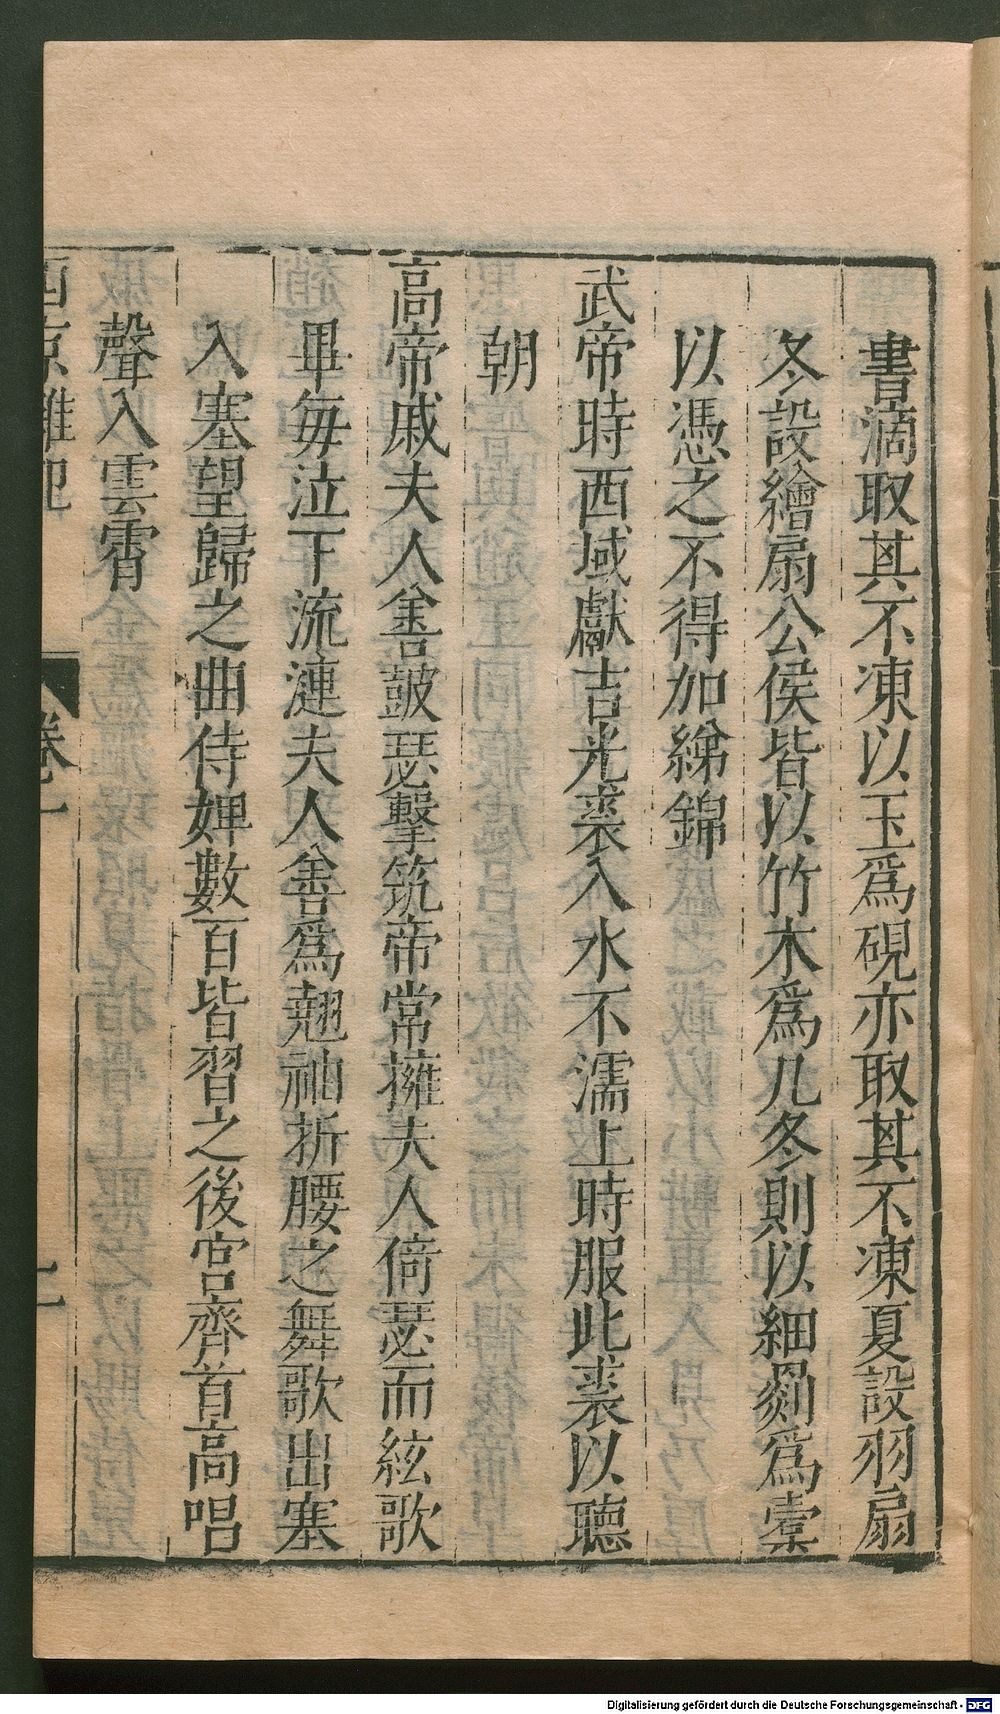 書滴取其不凍以玉爲硯亦取其不凍夏設羽扇
冬設繒扇公侯皆以竹木爲几冬則以細罽爲橐
以憑之不得加綈錦
武帝時西域獻吉光裘入水不濡上時服此裘以聽
朝
高帝戚夫人善鼓瑟擊筑帝常擁夫人倚瑟而絃歌
畢每泣下流漣夫人善爲翹袖折腰之舞歌出塞
入塞望歸之曲侍婢數百皆習之後宮齊首高唱
聲入雲霄
西京雜記 卷一 二
Digitalisierung gefördert durch die Deutsche Forschungsgemeinschaft - DFG